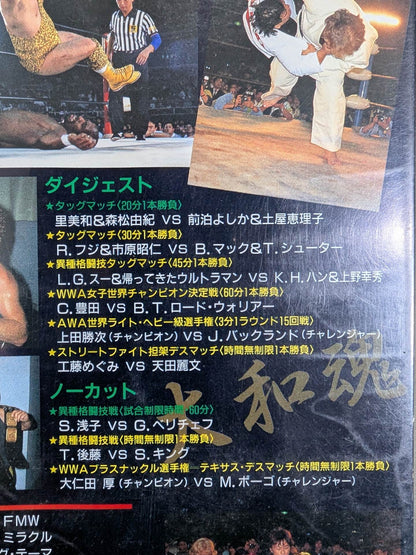 ダイジェスト
★タッグマッチ〈20分1本勝負〉
里美和&森松由紀 VS 前泊よしか&土屋恵理子
★タッグマッチ〈30分1本勝負〉
R.フジ&市原昭仁 VS B.マック&T.シューター
★異種格闘技タッグマッチ〈45分1本勝負〉
L.G.スー&帰ってきたウルトラマン VS K.H.ハン&上野幸秀
★WWA女子世界チャンピオン決定戦〈60分1本勝負〉
C.豊田 VS B.T.ロード・ウォリアー
★AWA世界ライト・ヘビー級選手権〈3分1ラウンド15回戦〉
上田勝次(チャンピオン) VS J.バックランド(チャレンジャー)
★ストリートファイト担架デスマッチ〈時間無制限1本勝負〉
工藤めぐみ VS 天田麗文
ノーカット
★異種格闘技戦〈試合制限時間・60分〉
S.浅子 VS G.ベリチェフ
★異種格闘技戦〈時間無制限1本勝負〉
T.後藤 VS S.キング
★WWAブラスナックル選手権 テキサス・デスマッチ〈時間無制限1本勝負〉
大仁田 厚(チャンピオン) VS M.ボーゴ(チャレンジャー)
大和魂
FMW
ミラクル
グ・テーマ